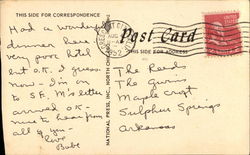 THIS SIDE FOR CORRESPONDENCE
Had a wonderful
dinner here
very poor hotel
but O.K. I guess.
now - I'm on
to St. M's letter
arrived OK -
nice to hear from
all of you -
Love
Babe
NATIONAL PRESS, INC., NORTH CHICAGO
AUG
1952
Post Card
THIS SIDE FOR ADDRESS
The Reeds
The Gwins
Maple Croft
Sulphur Springs
Arkansas